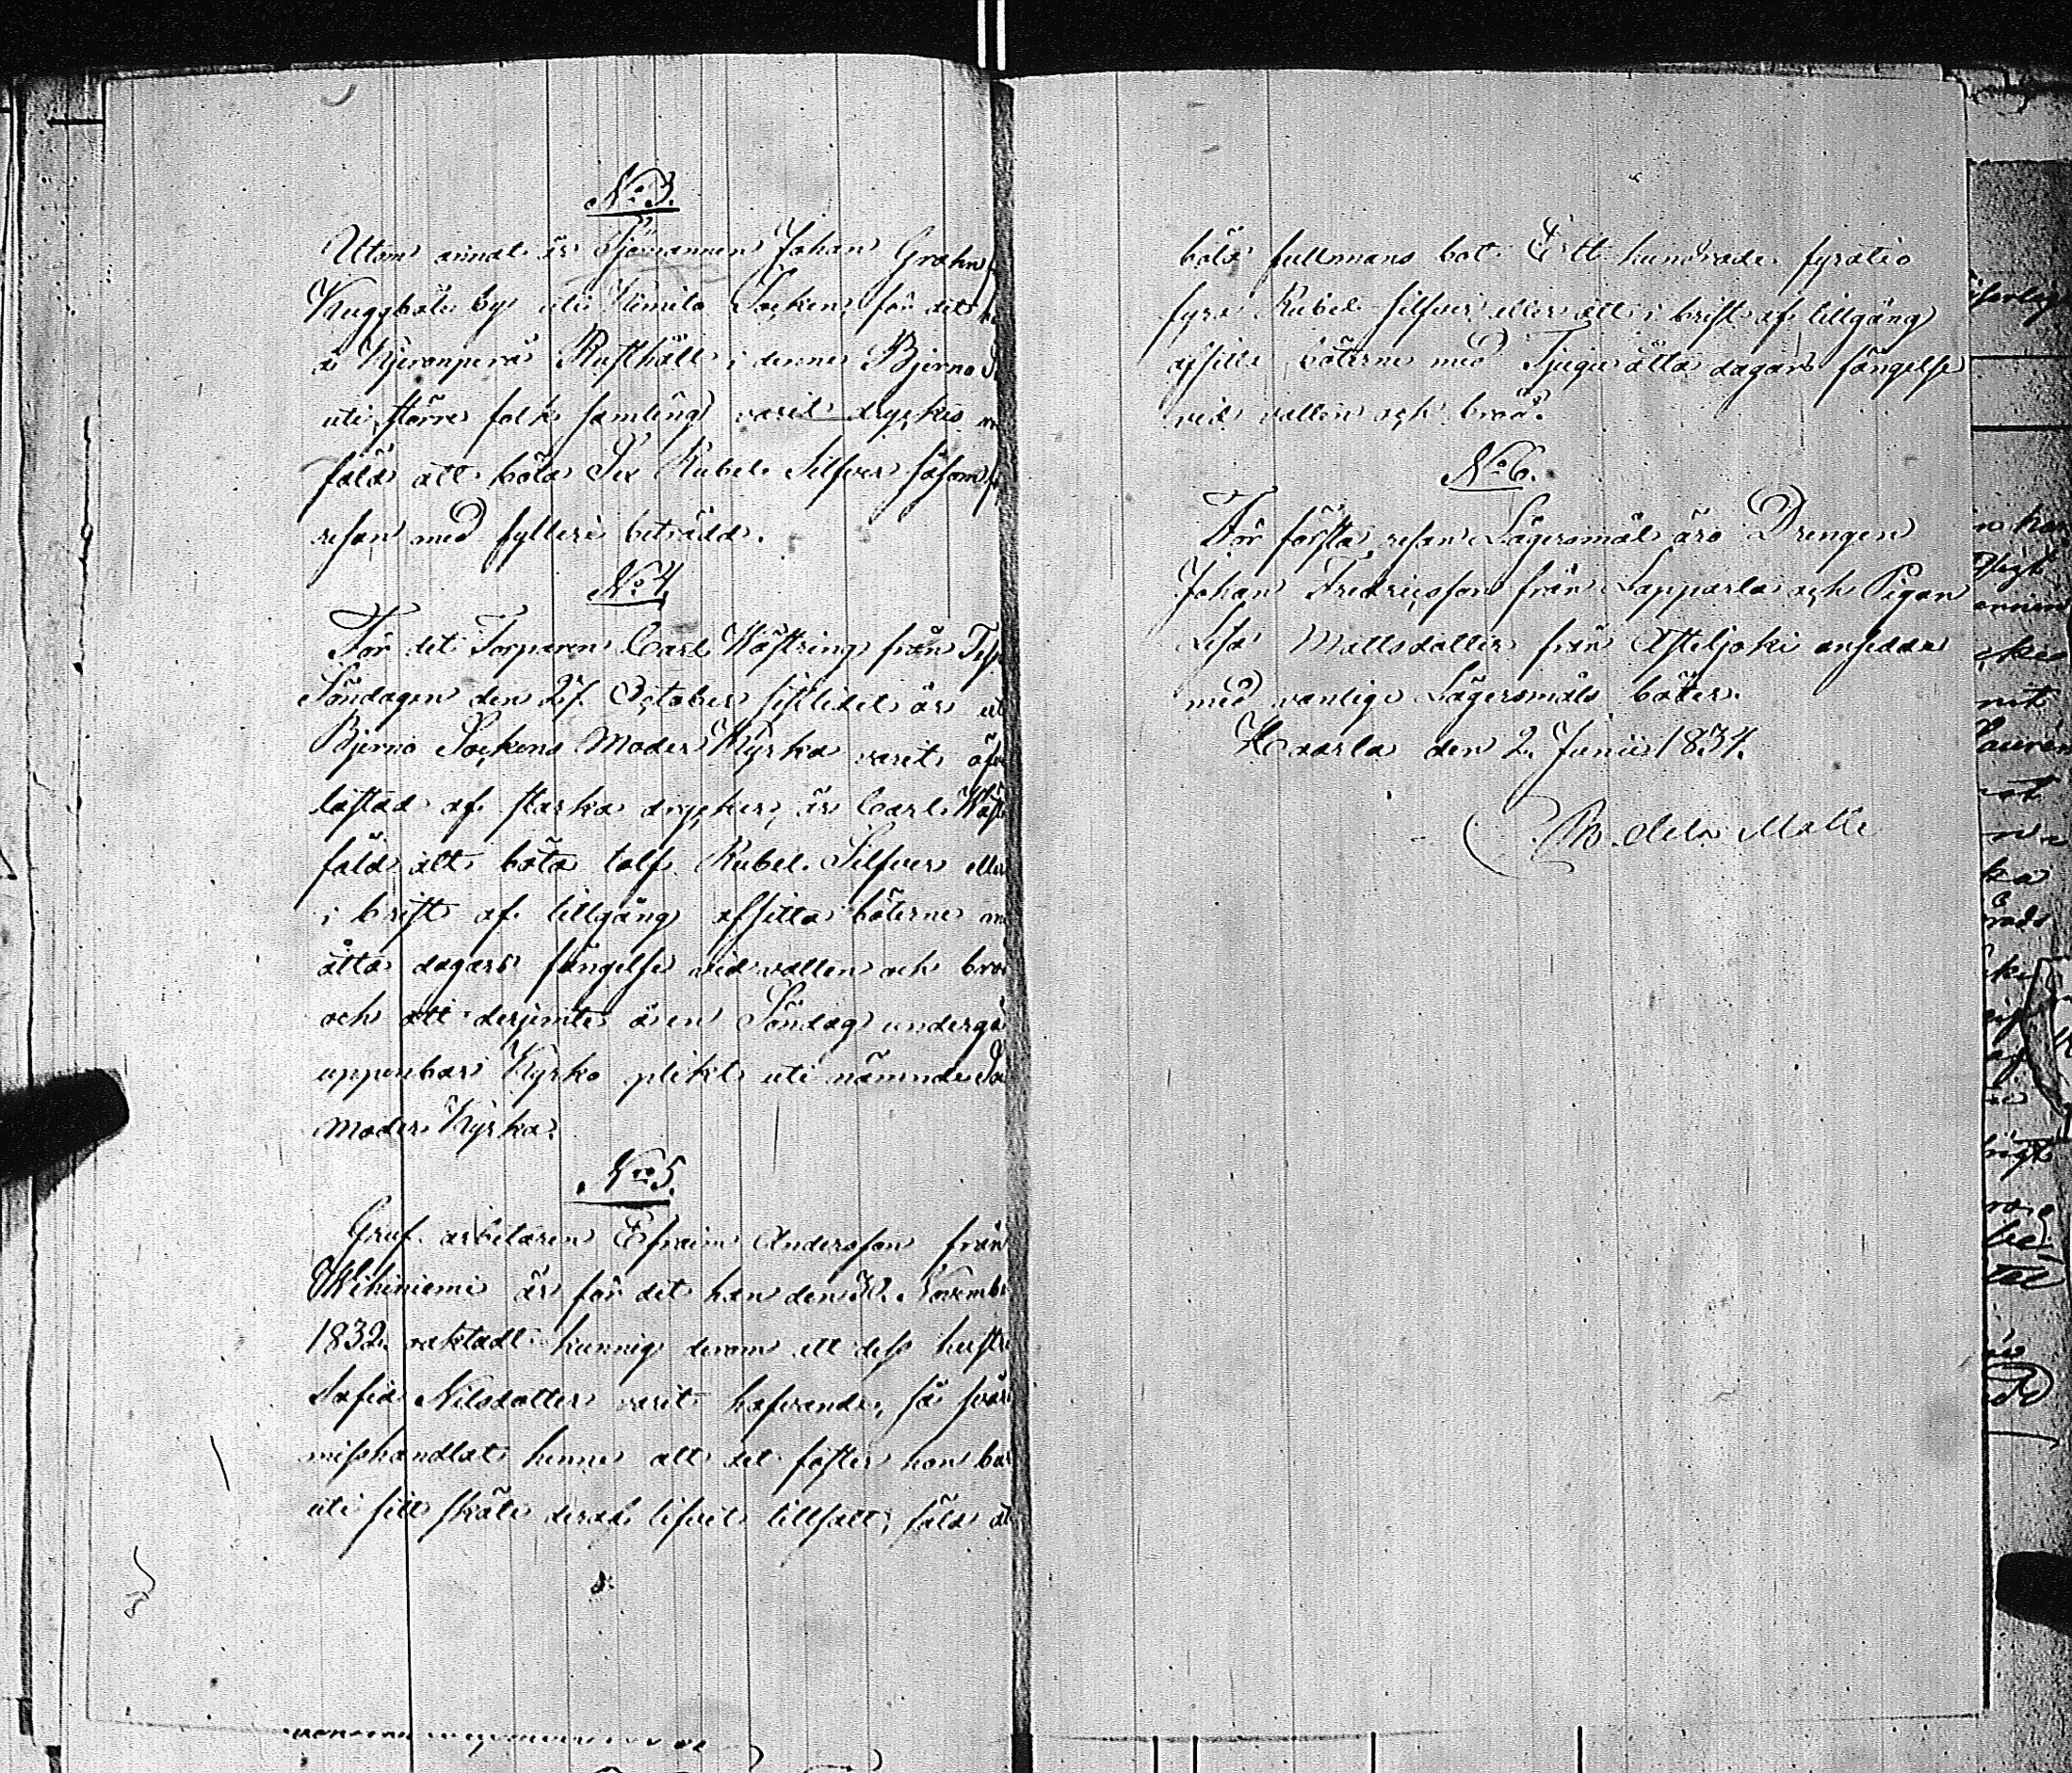 No 3.
Utom annat är Sjömannen Johan Grahn
Kuggböle by uti Kimito Socken, för det
å Kjeranperä Rusthåll i denne Bjerno
uti större folk samling varit dryckes
fäld att böta Sex Rubel Silfver såsom
resan med fylleri beträdd.
No 4.
För det Torparen Carl Wästring från
Söndagen den 27. October sistledet år
Bjerno Sockens Moder Kyrka varit
lastad af starka drycker, är Carl
fäld att böta tolf Rubel Silfver eller
i brist af tillgång afsitta böterne
åtta dagars fängelse vid vatten och
och att derjemte å en Söndag undergå
uppenbar Kyrko plikt uti nämnde
Moder Kyrka.
No 5.
Gruf arbetaren Efraim Andersson från
är för det han den 30. Novemb
1832. kunnig derom att dess hustru
Sofia Nilsdotter varit hafvande, så svårt
misshandlat henne att det foster hon bar
uti sitt sköte deraf lifvet tillsatt, fäld
böta fullmans bot Ett hundrade fyratio
fyra Rubel silfver eller att i brist af tillgång
afsitta böterne med Tjugu åtta dagars fängelse
vid vatten och bröd.
No 6.
För första resan Lägersmål äro Drengen
Johan Fredricsson från Lapparla och Pigan
Lisa Mattsdotter från ansedda
med vanlige Lägersmåls böter.
Haarla den 2. Junii 1834.
De la Motte